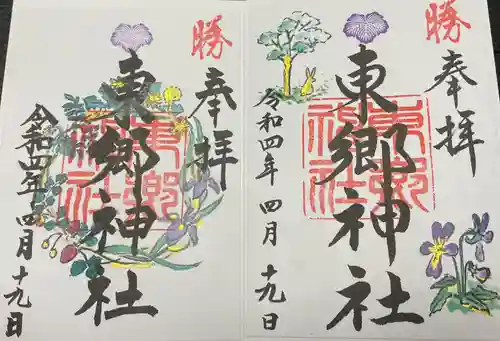 勝
奉拝
東郷神社
東郷神社
令和四年 四月 十九日
勝
奉拝
東郷神社
東郷神社
令和四年 四月 十九日